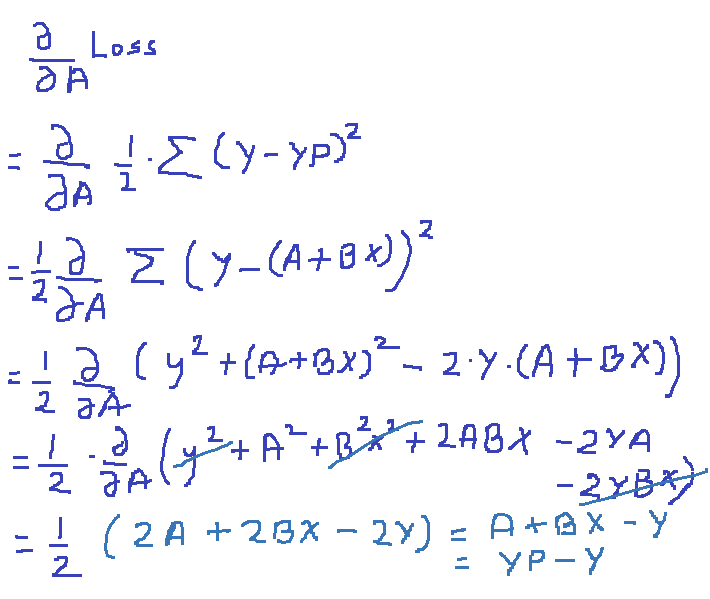 ∂/∂A Loss
= ∂/∂A 1/2 · Σ (Y - YP)²
= 1/2 ∂/∂A Σ (Y - (A + BX))²
= 1/2 ∂/∂A (y² + (A + BX)² - 2·Y·(A + BX))
= 1/2 · ∂/∂A (y² + A² + B²X² + 2ABX - 2YA
- 2YBX)
= 1/2 (2A + 2BX - 2Y) = A + BX - Y
= YP - Y